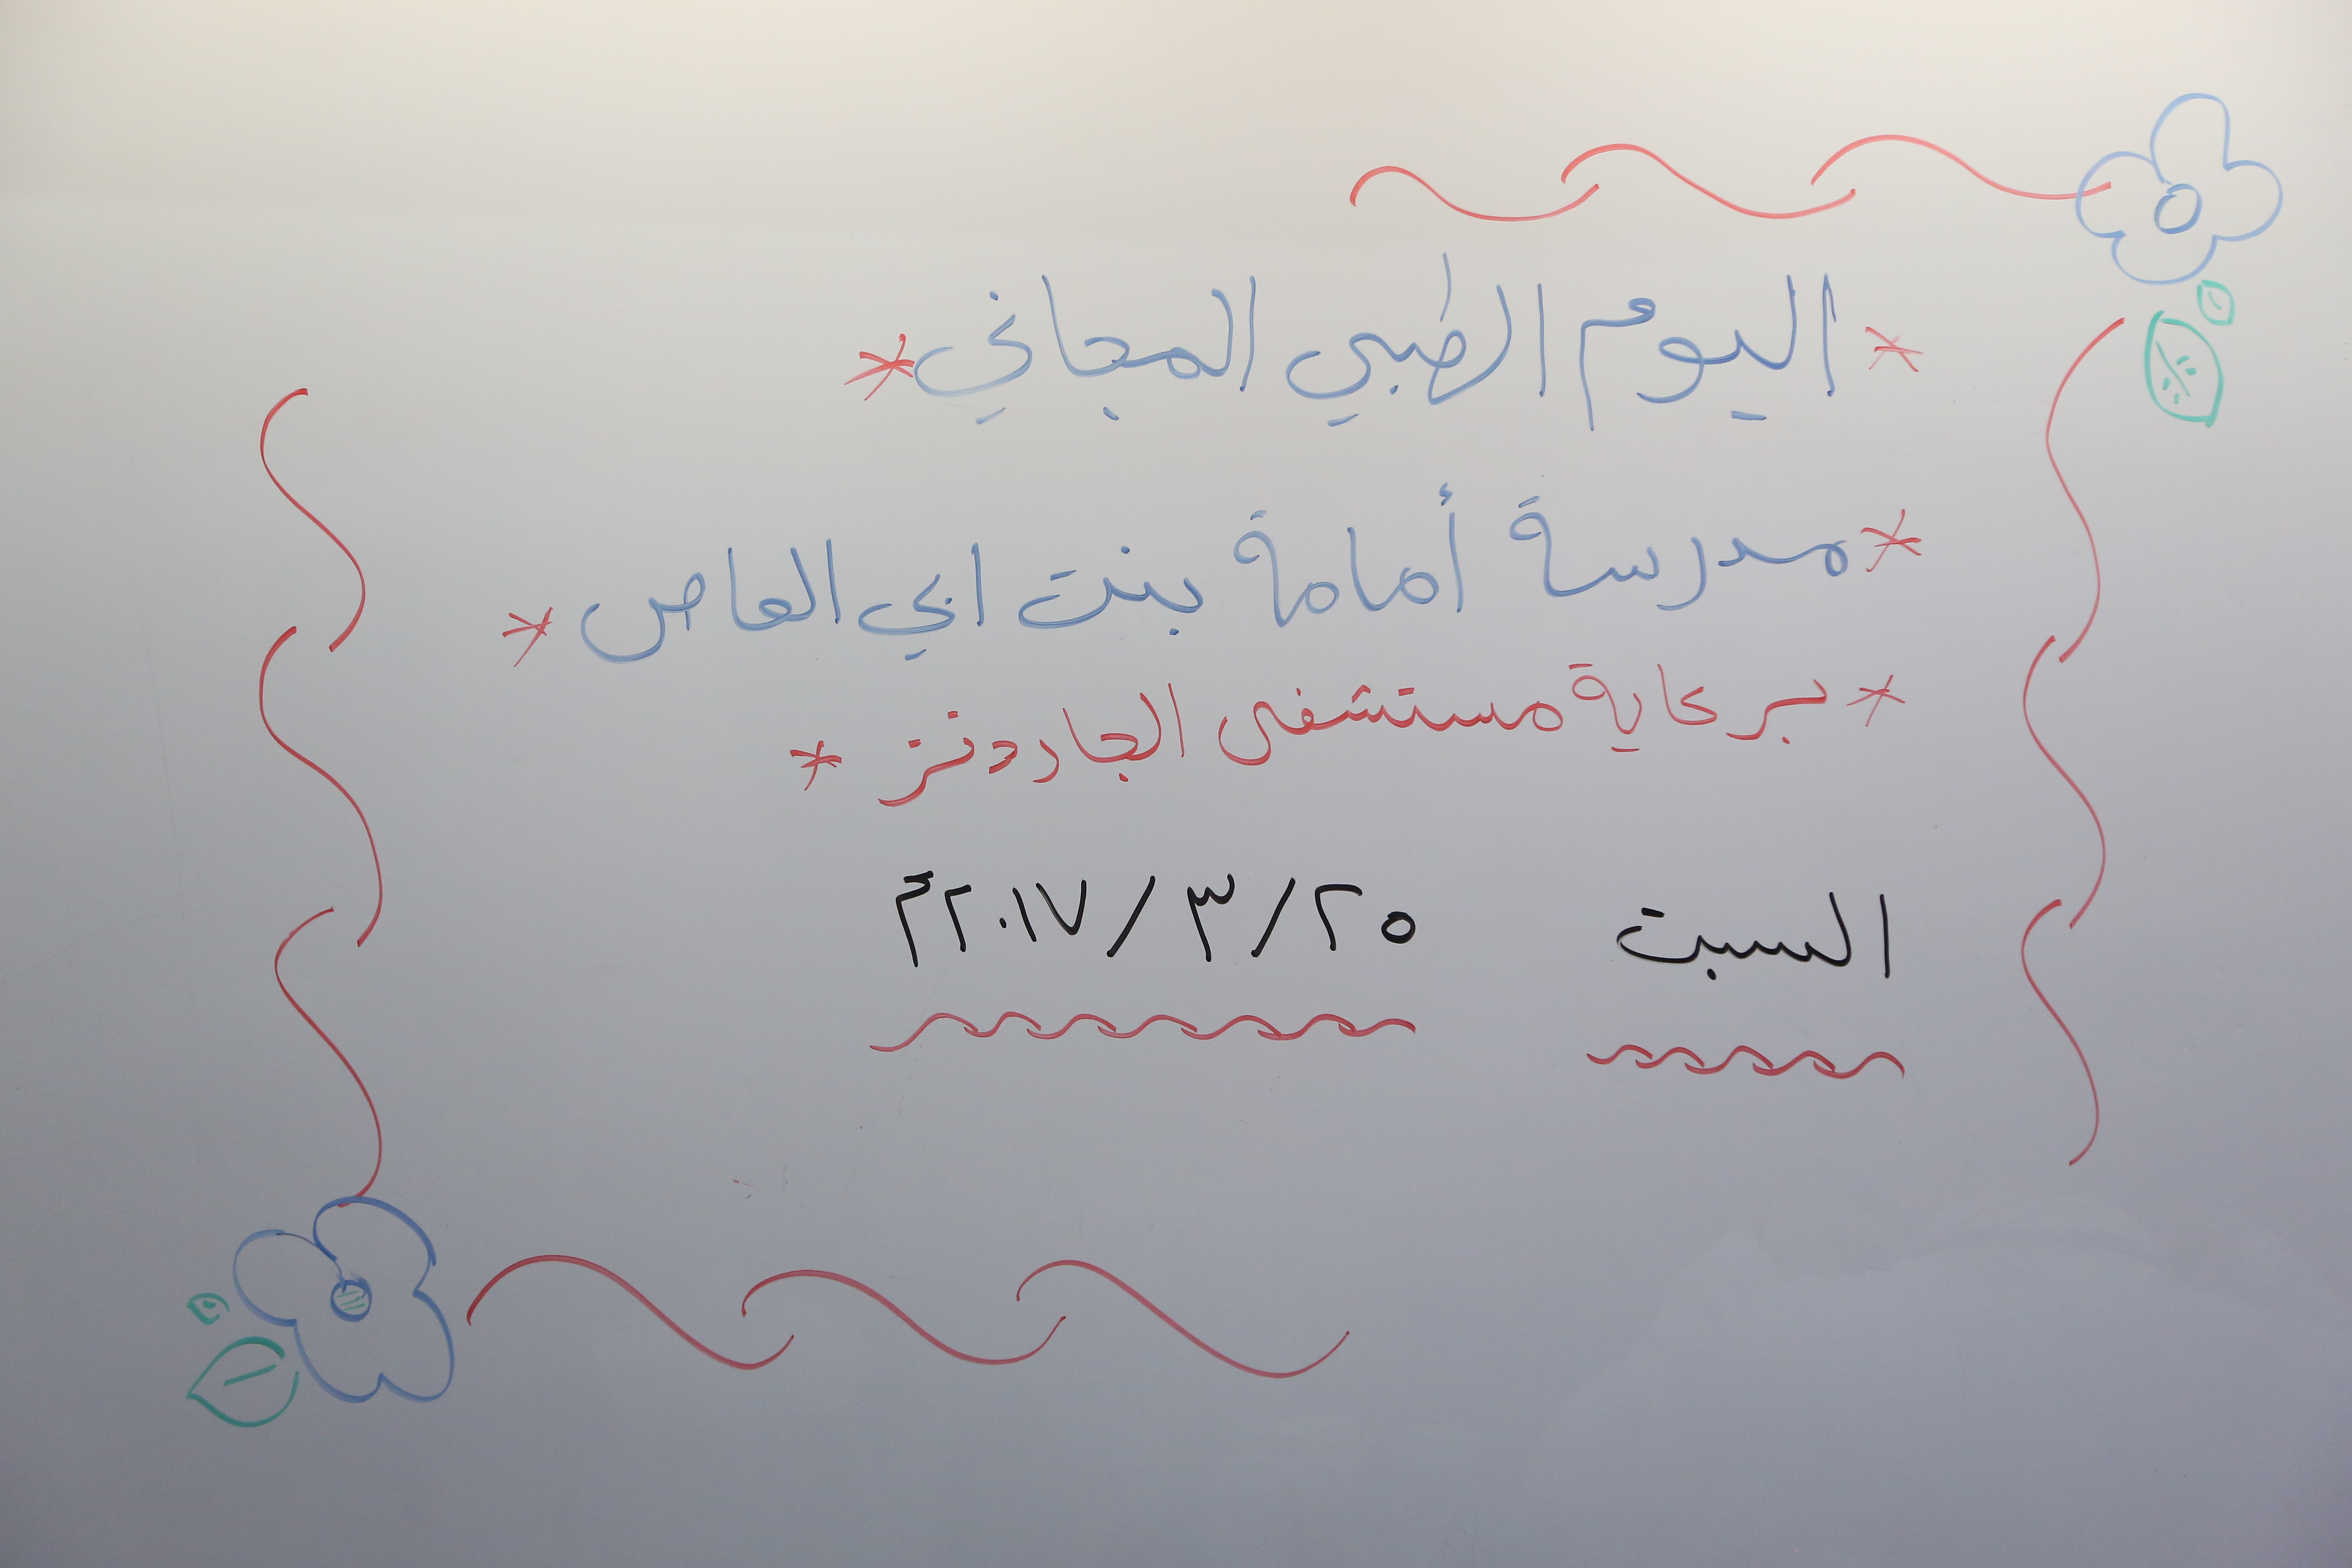 * اليوم الطبي المجاني *
* مدرسة أمامة بنت ابي العاص *
* برعاية مستشفى الجاردنز *
السبت ٢٥/٣/٢٠١٧م